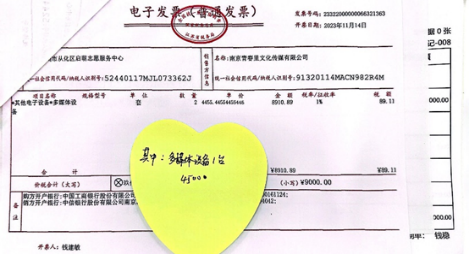 电子发票(普通发票)
发票号码:
开票日期: 2023年11月14日
据 0 张
记-008
市从化区启顺志愿服务中心
统一社会信用代码/纳税人识别号: 52440117MJL073362J
销售方信息
南京青春里文化传媒有限公司
统一社会信用代码/纳税人识别号: 91320114MACN982R4M
项目名称 规格型号 单位 数量 单价 金额 税率/征收率 税额
*其他电子设备*多媒体设备 套 2 8910.89 1% 89.11
其中:多媒体设备1台
45000
¥8910.89 ¥89.11
价税合计(大写) (小写) ¥9000.00
备注
购方开户银行:中国工商银行股份有限公司
销方开户银行:中信银行股份有限公司南京
开票人: 钱建敏
制单: 钱稳